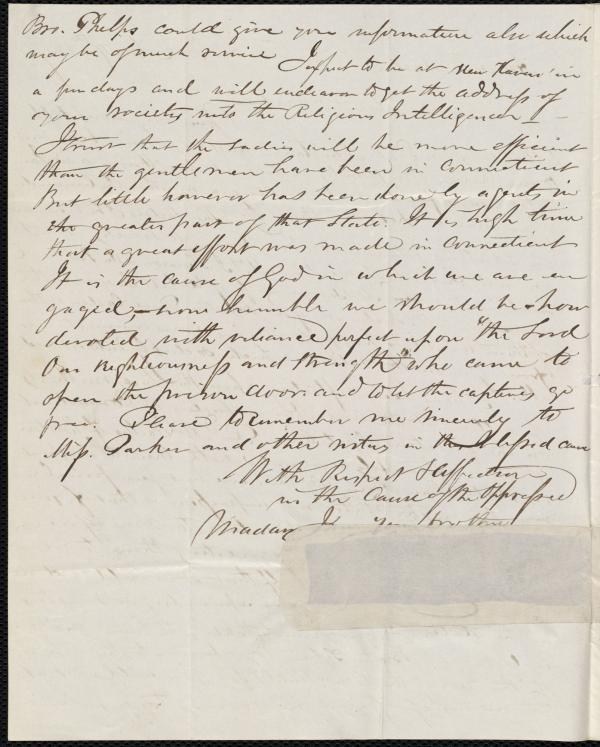 Bro. Phelps could give you information also which
may be of much service I expect to be at New Haven in
a few days and will endeavor to get the address of
your society into the Religious Intelligencer —
I trust that the Ladies will be more efficient
than the gentlemen have been in Connecticut
But little however has been done by agents in
the greater part of that State. It is high time
that a great effort was made in Connecticut
It is the cause of God in which we are en
gaged — how humble we should be & how
devoted with reliance perfect upon "the Lord
Our righteousness and strength" who came to
open the prison doors and to let the captives go
free. Please to remember me sincerely to
Miss. Parker and other sisters in the blessed cause
With Respect & affection
in the Cause of the Oppressed
Madam I your brother